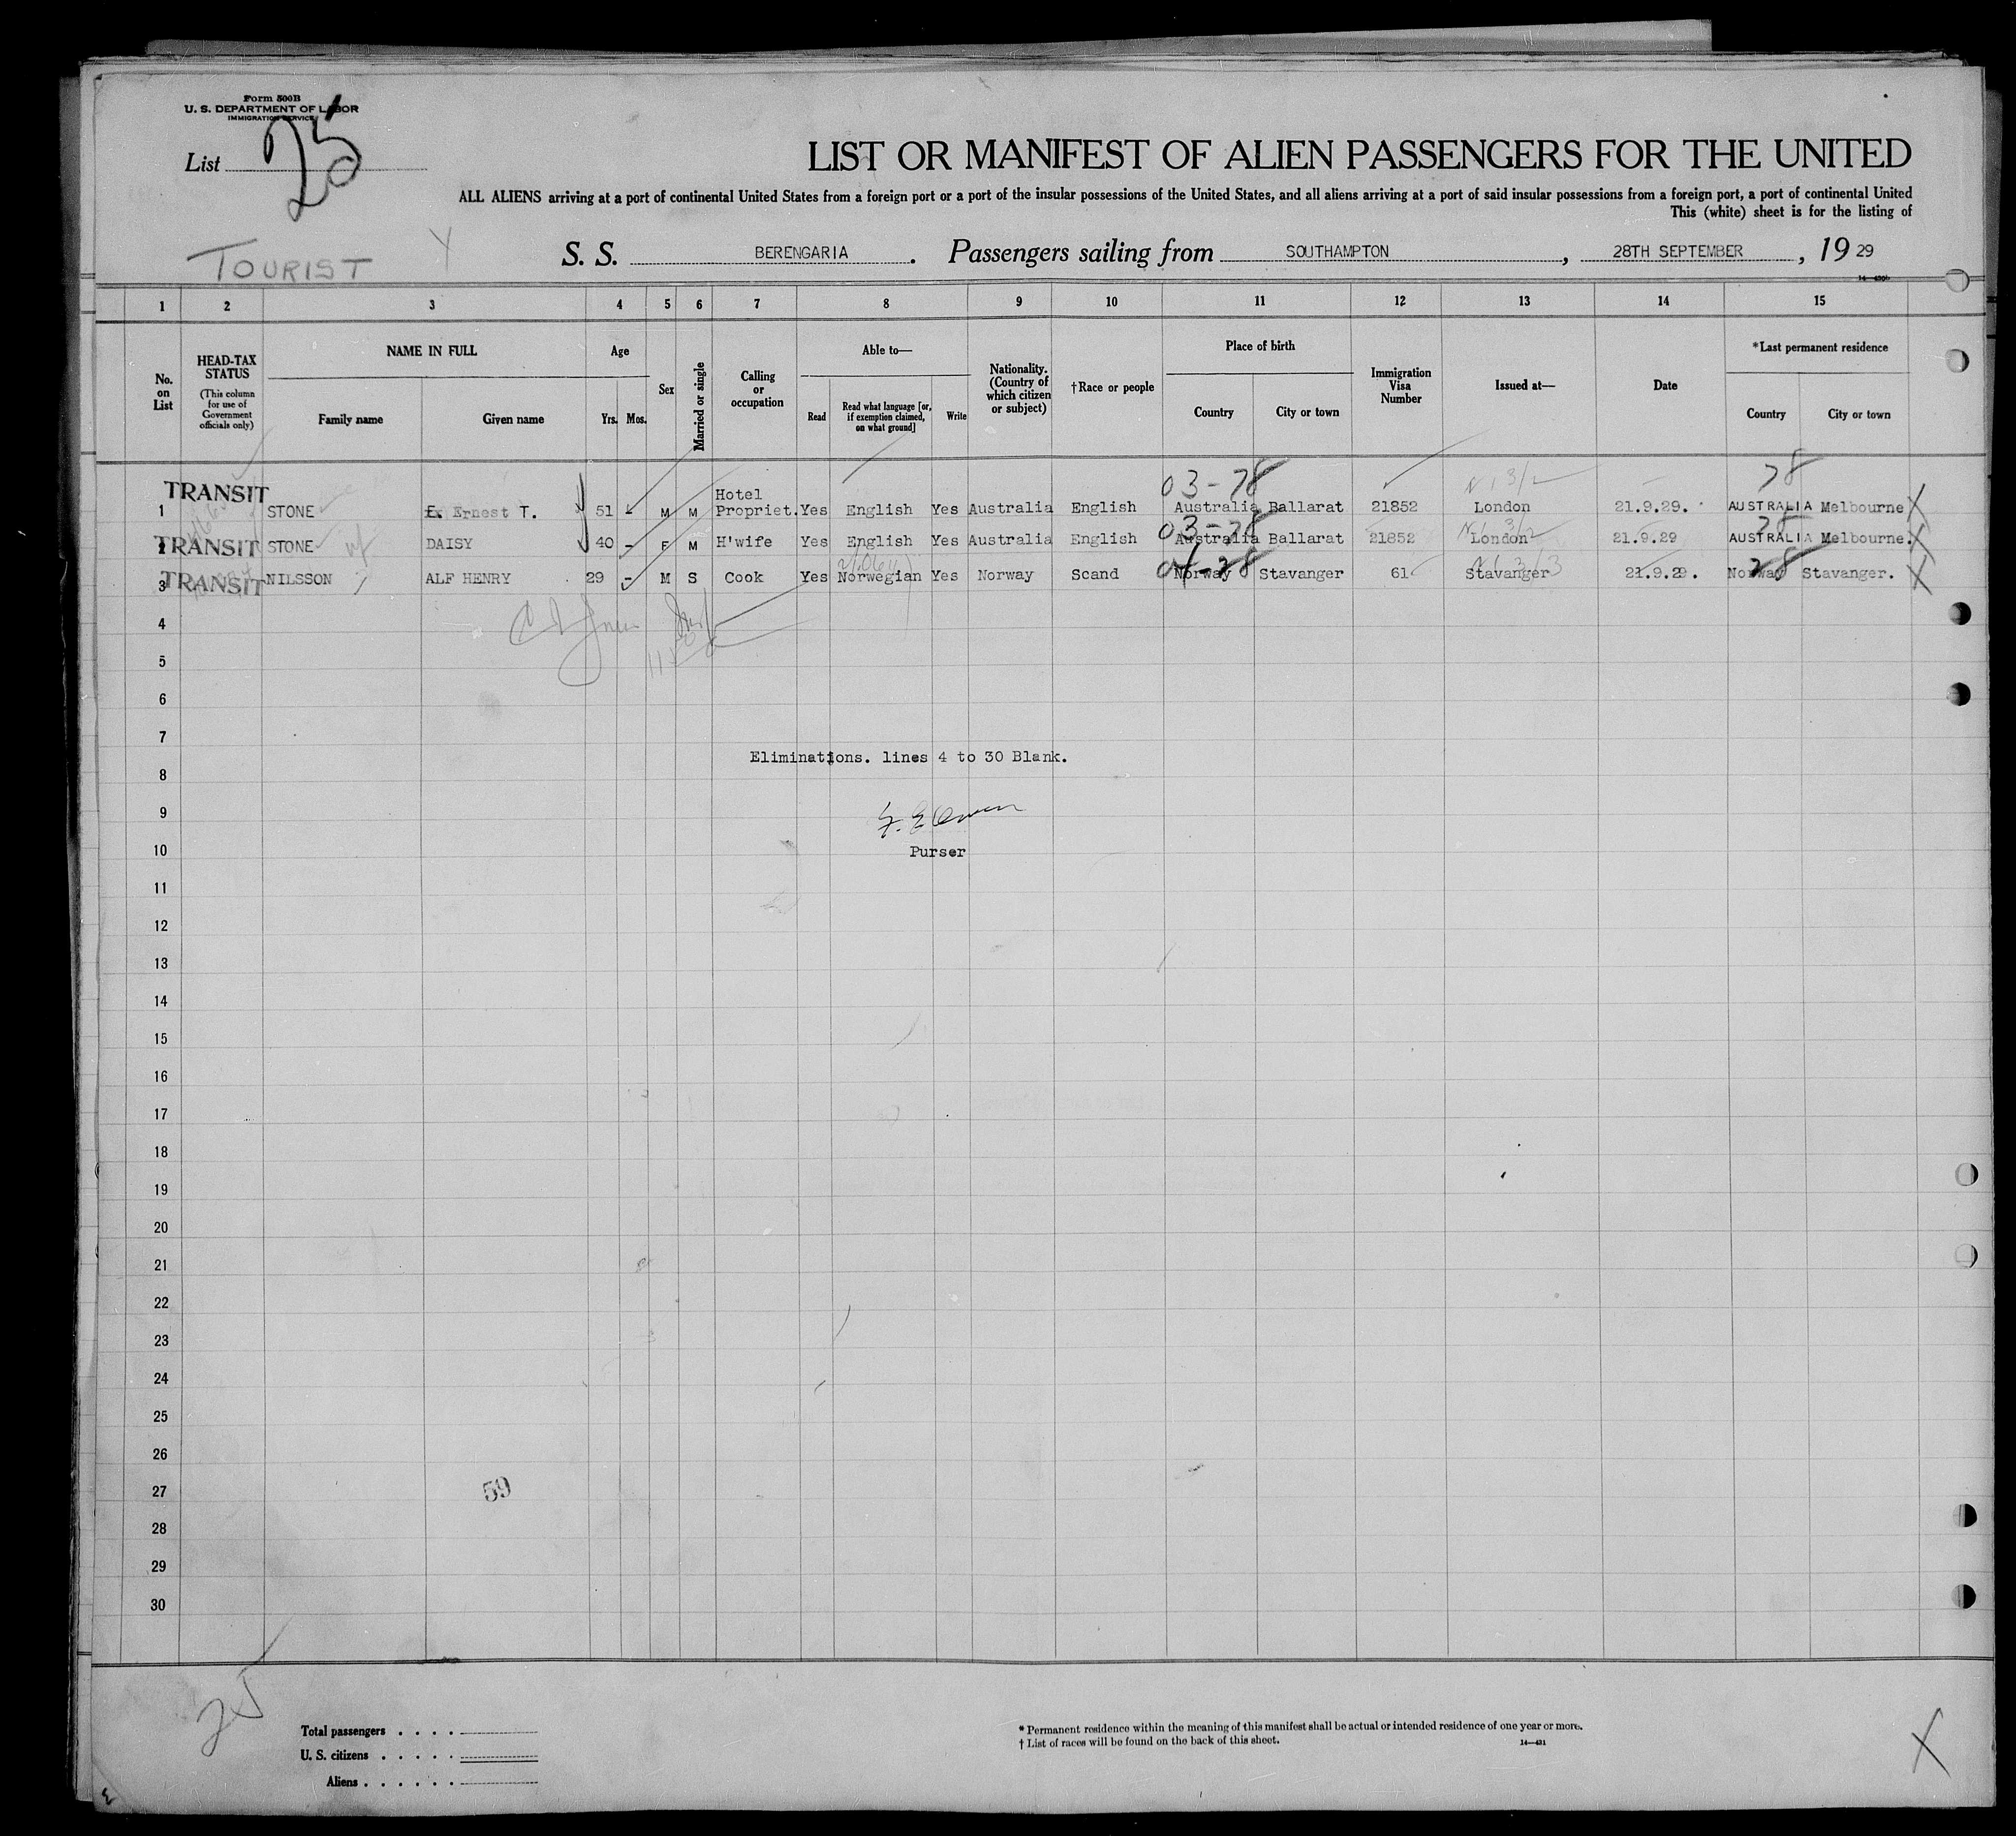 Form 500B
U. S. DEPARTMENT OF LABOR
IMMIGRATION SERVICE
List 25
LIST OR MANIFEST OF ALIEN PASSENGERS FOR THE UNITED
ALL ALIENS arriving at a port of continental United States from a foreign port or a port of the insular possessions of the United States, and all aliens arriving at a port of said insular possessions from a foreign port, a port of continental United
This (white) sheet is for the listing of
TOURIST Y S. S. BERENGARIA. Passengers sailing from SOUTHAMPTON, 28TH SEPTEMBER, 19 29
1 2 3 4 5 6 7 8 9 10 11 12 13 14 15
No. on List HEAD-TAX STATUS (This column for use of Government officials only) NAME IN FULL Family name Given name Age Yrs. Mos. Sex Married or single Calling or occupation Able to— Read Read what language [or, if exemption claimed, on what ground] Write Nationality. (Country of which citizen or subject) †Race or people Place of birth Country City or town Immigration Visa Number Issued at— Date *Last permanent residence Country City or town
03-78 78
1 TRANSIT STONE E. Ernest T. 51 - M M Hotel Propriet. Yes English Yes Australia English Australia Ballarat 21852 London 21.9.29. AUSTRALIA Melbourne X
03-78 78
2 TRANSIT STONE DAISY 40 - F M H'wife Yes English Yes Australia English Australia Ballarat 21852 London 21.9.29 AUSTRALIA Melbourne. X
3 TRANSIT NILSSON ALF HENRY 29 - M S Cook Yes Norwegian Yes Norway Scand Norway Stavanger 61 Stavanger 21.9.29. Norway Stavanger. X
4
5
6
7
Eliminations. lines 4 to 30 Blank.
8
9
F. E Owen
10
Purser
11
12
13
14
15
16
17
18
19
20
21
22
23
24
25
26
27
59
28
29
30
25
Total passengers . . . .
U. S. citizens . . . . .
Aliens . . . . . .
* Permanent residence within the meaning of this manifest shall be actual or intended residence of one year or more.
† List of races will be found on the back of this sheet.
14—431
X